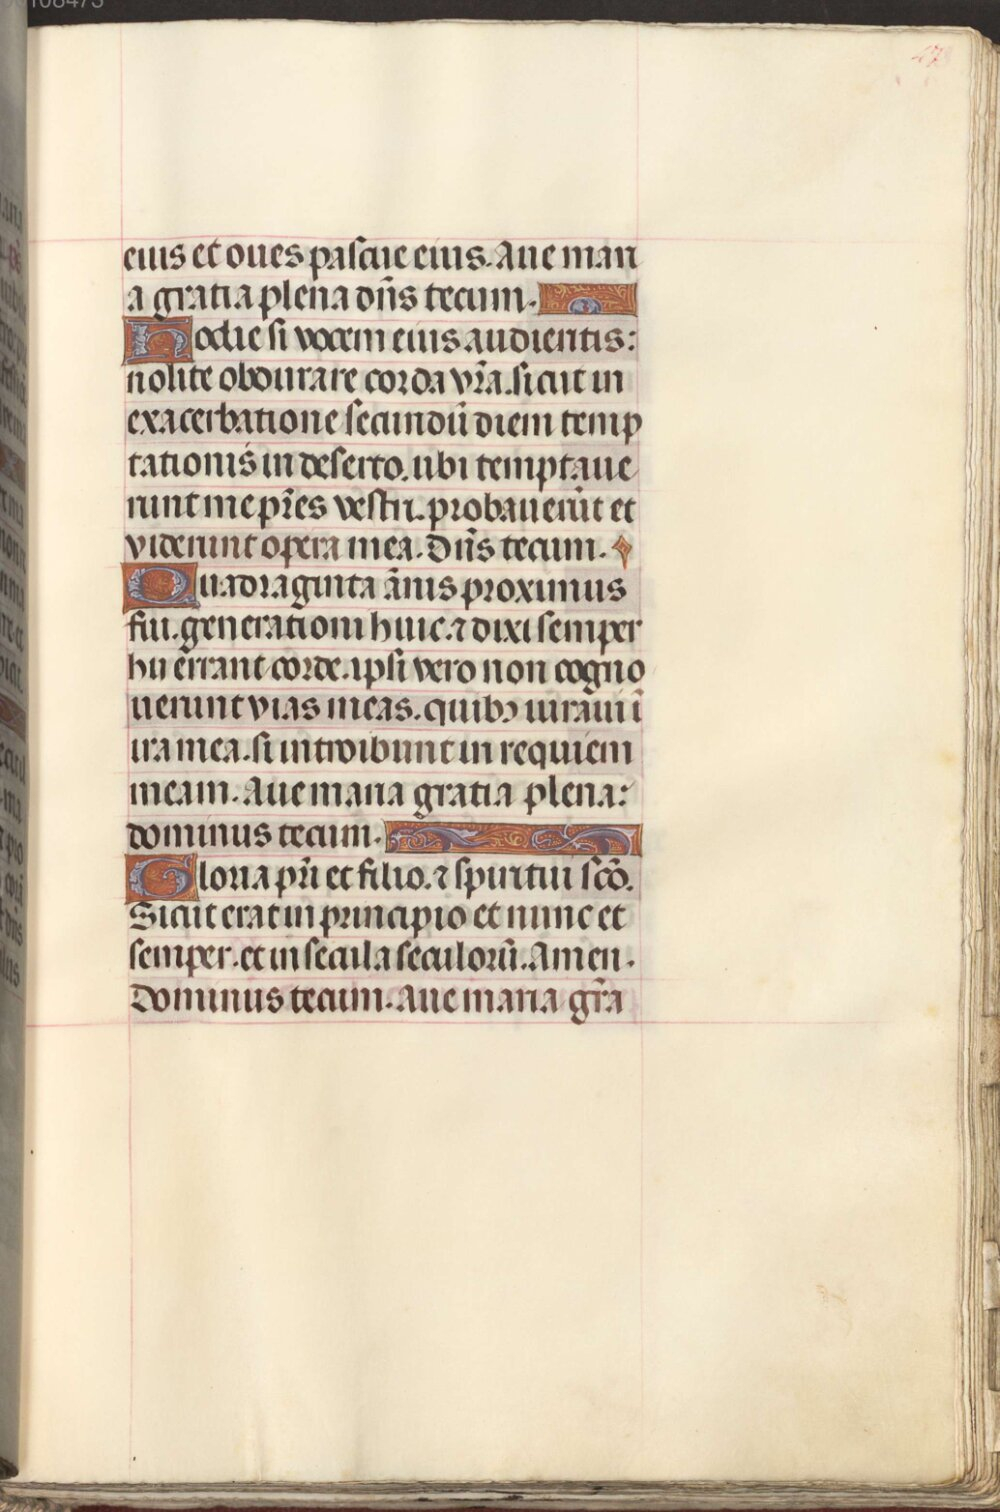 47
eius et oues pascue eius. Aue mari
a gratia plena dn̄s tecum.
Hodie si vocem eius audieritis:
nolite obdurare corda vr̄a. sicut in
exacerbatione secundū diem temp
tationis in deserto. ubi temptaue
runt me pr̄es vestri. probauerūt et
viderunt opera mea. Dn̄s tecum.
Quadraginta ānis proximus
fui. generationi huic. ⁊ dixi semper
hii errant corde. ipsi vero non cogno
uerunt vias meas. quibꝫ iuraui ī
ira mea. si introibunt in requiem
meam. Aue maria gratia plena:
dominus tecum.
Gloria pr̄i et filio. ⁊ spiritui scō.
Sicut erat in principio et nunc et
semper. et in secula seculorū. Amen.
Dominus tecum. Aue maria gr̄a